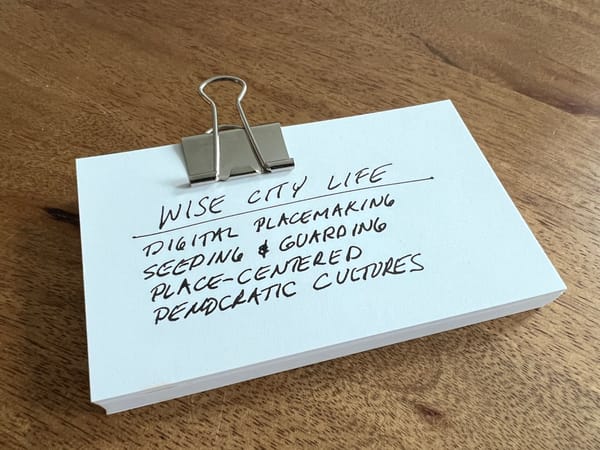 WISE CITY LIFE
DIGITAL PLACEMAKING
SEEDING & GUARDING
PLACE-CENTERED
DEMOCRATIC CULTURES